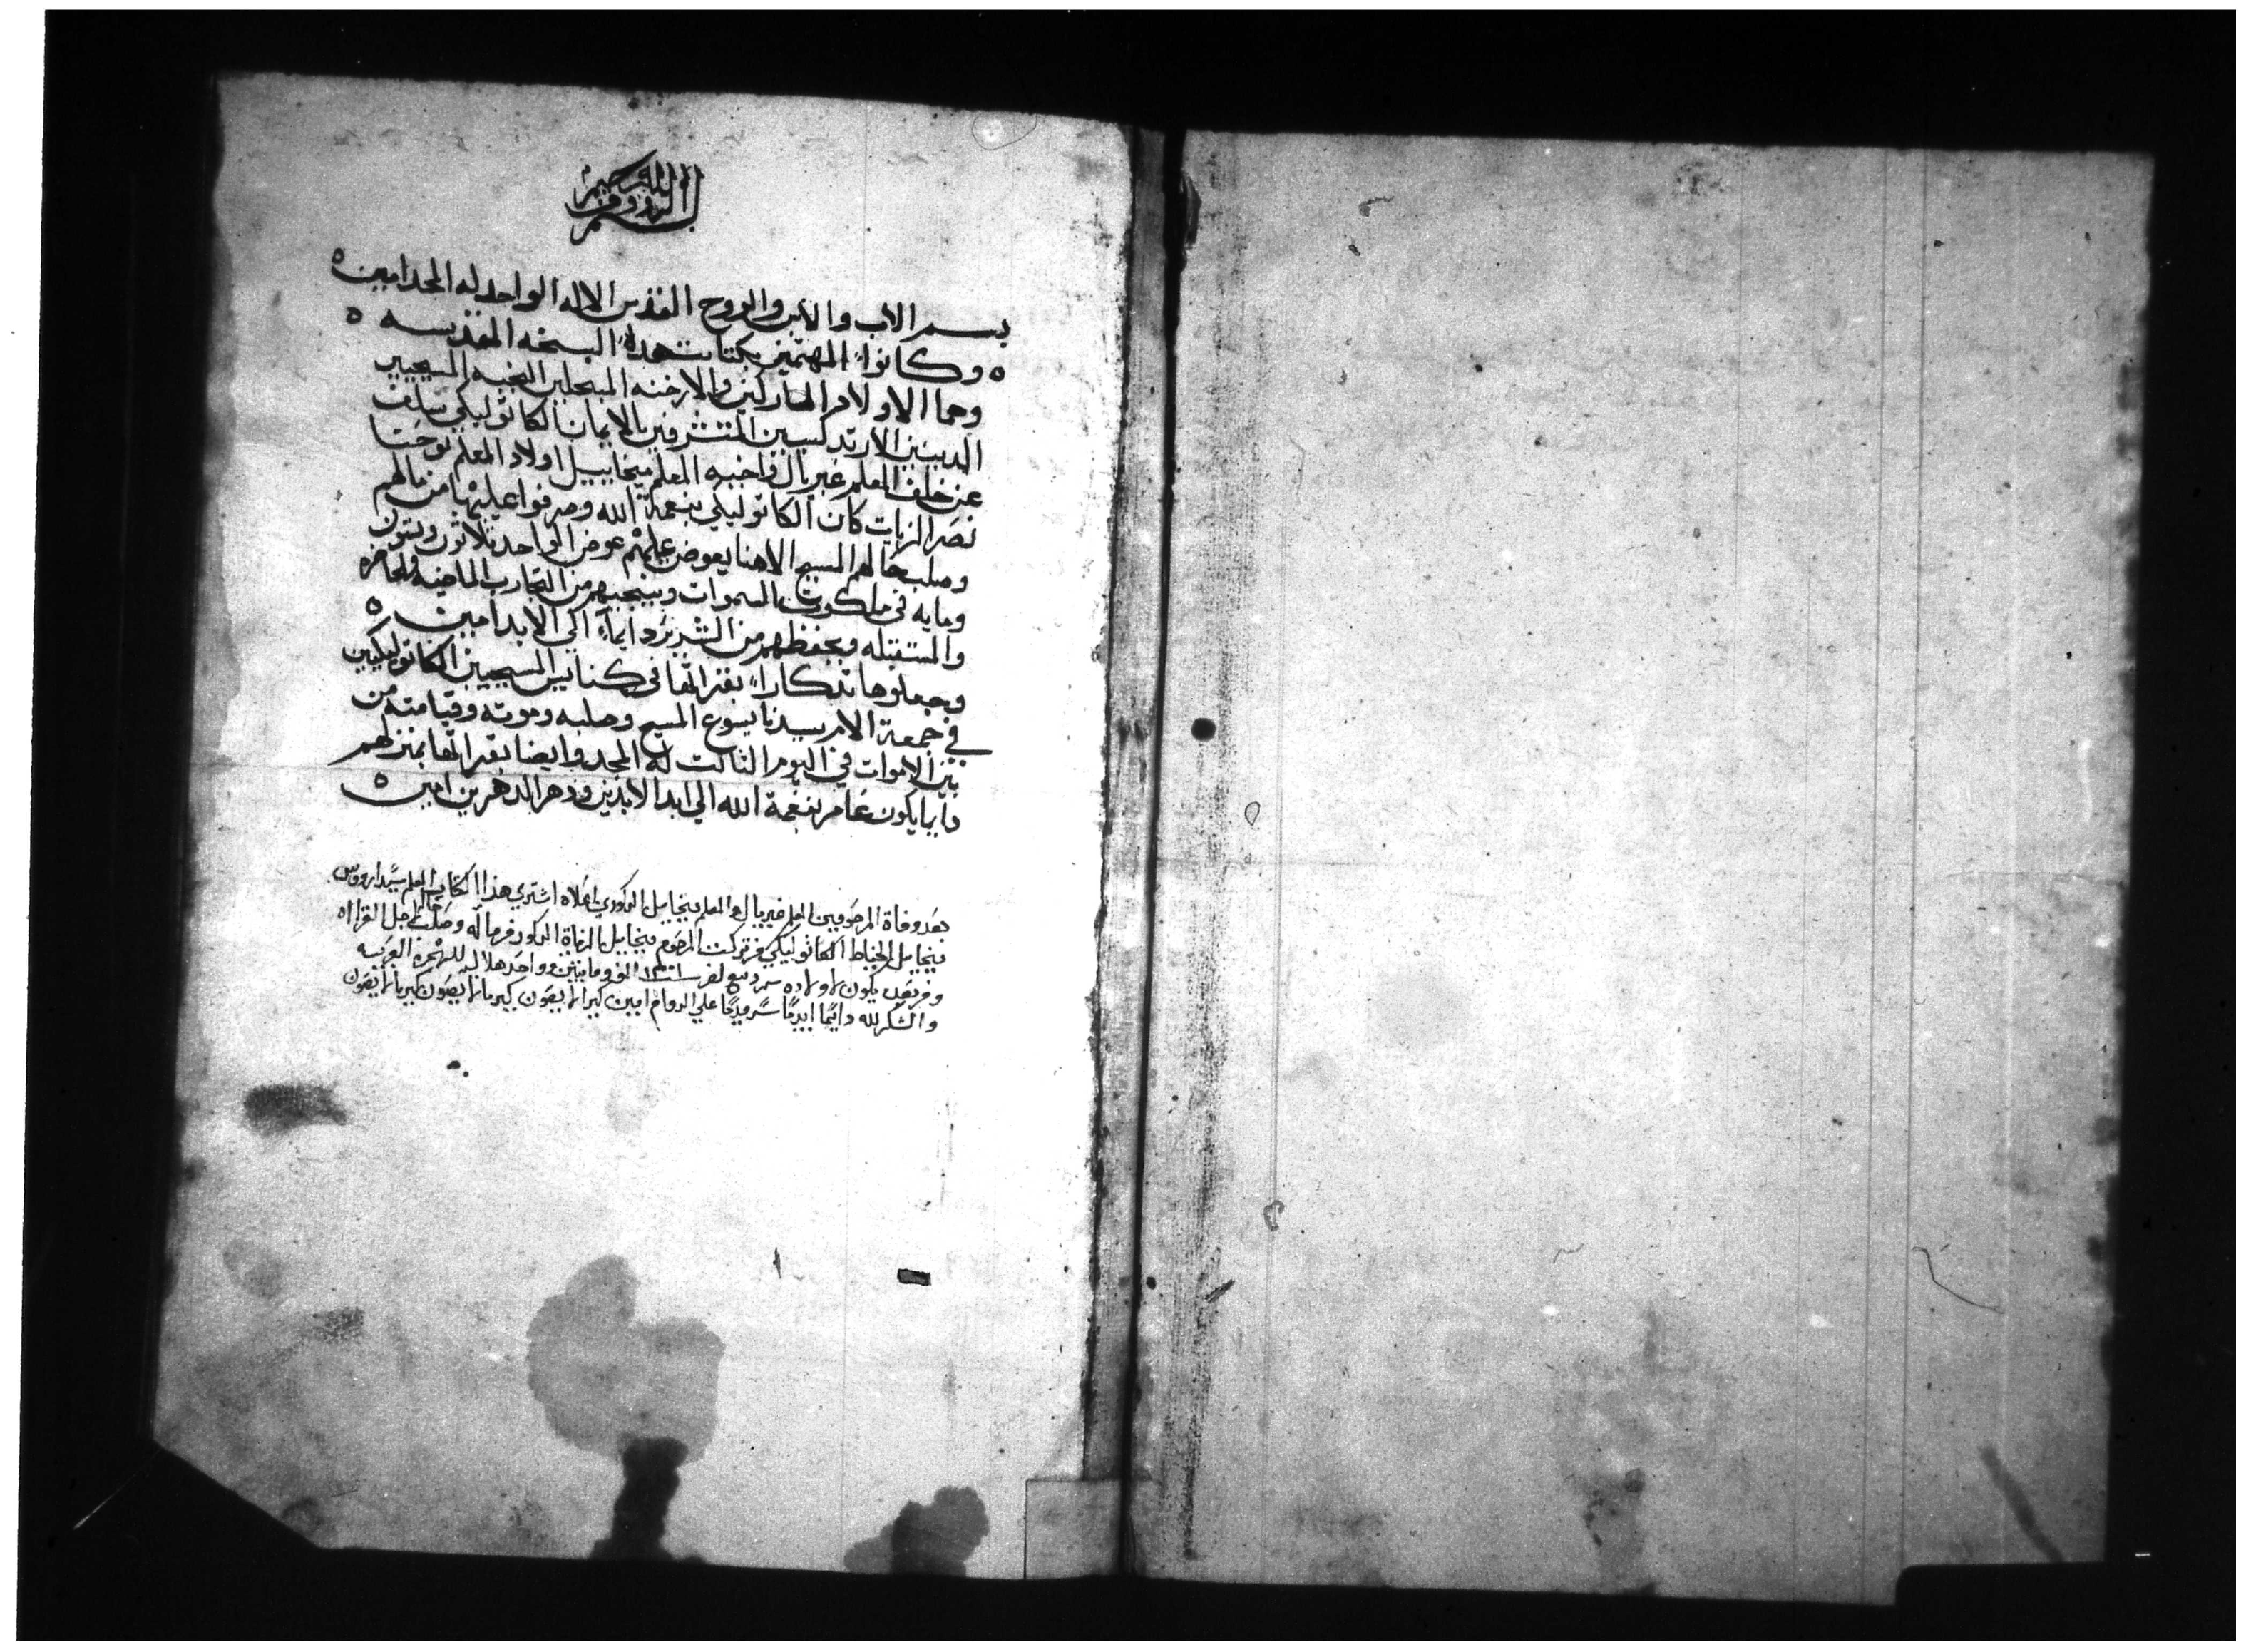 بسم الله الروف الرحيم
بسم الاب والابن والروح القدس الاله الواحد له المجد امين ه
ه وكانوا المهتمين بكتابت هده النسخه المقدسه ه
وهما الاولاد المباركين والارخنه المبجلين النخبه المسيحيين
الدينين الارتدكسيين المتشرفين بالايمان الكاتوليكي سلف
عن خلف المعلم غبريال واخيه المعلم ميخاييل اولاد المعلم يوحنا
نصر الزيات كان الكاتوليكي بنعمة الله وصرفوا عليها من مالهم
وصلب حالهم المسيح الاهنا يعوض عليهم عوض الواحد تلاتون وستون
ومايه في ملكوت السموات وينجيهم من التجارب الماضيه والحاضره
والمستقبله ويحفظهم من الشرير دايماً الي الابد امين ه
وجعلوها تدكاراً بقراتها في كنايس المسيحيين الكاتوليكيين
في جمعة الام سيدنا يسوع المسيح وصلبه وموته وقيامته من
بين الاموات في اليوم التالت له المجد وايضا بقراتها بمنزلهم
دايما يكون عامر بنعمة الله الي ابد الابدين ودهر الدهرين امين ه
بعد وفاة المرحومين المعلم غبريال والمعلم ميخاييل المدكورين اعلاه اشتري هذا الكتاب المعلم
ميخاييل الخياط الكاتوليكي من تركت المرحوم ميخاييل الزيات المدكور من ماله وصلب حاله لاجل القراه
يكون له ولاولاده الف ومايتين وواحد هلاليه للهجره العربيه
والشكر لله دايمًا ابديًا سرمديًا علي الدوام امين كيرياليصون كيرياليصون كيرياليصون